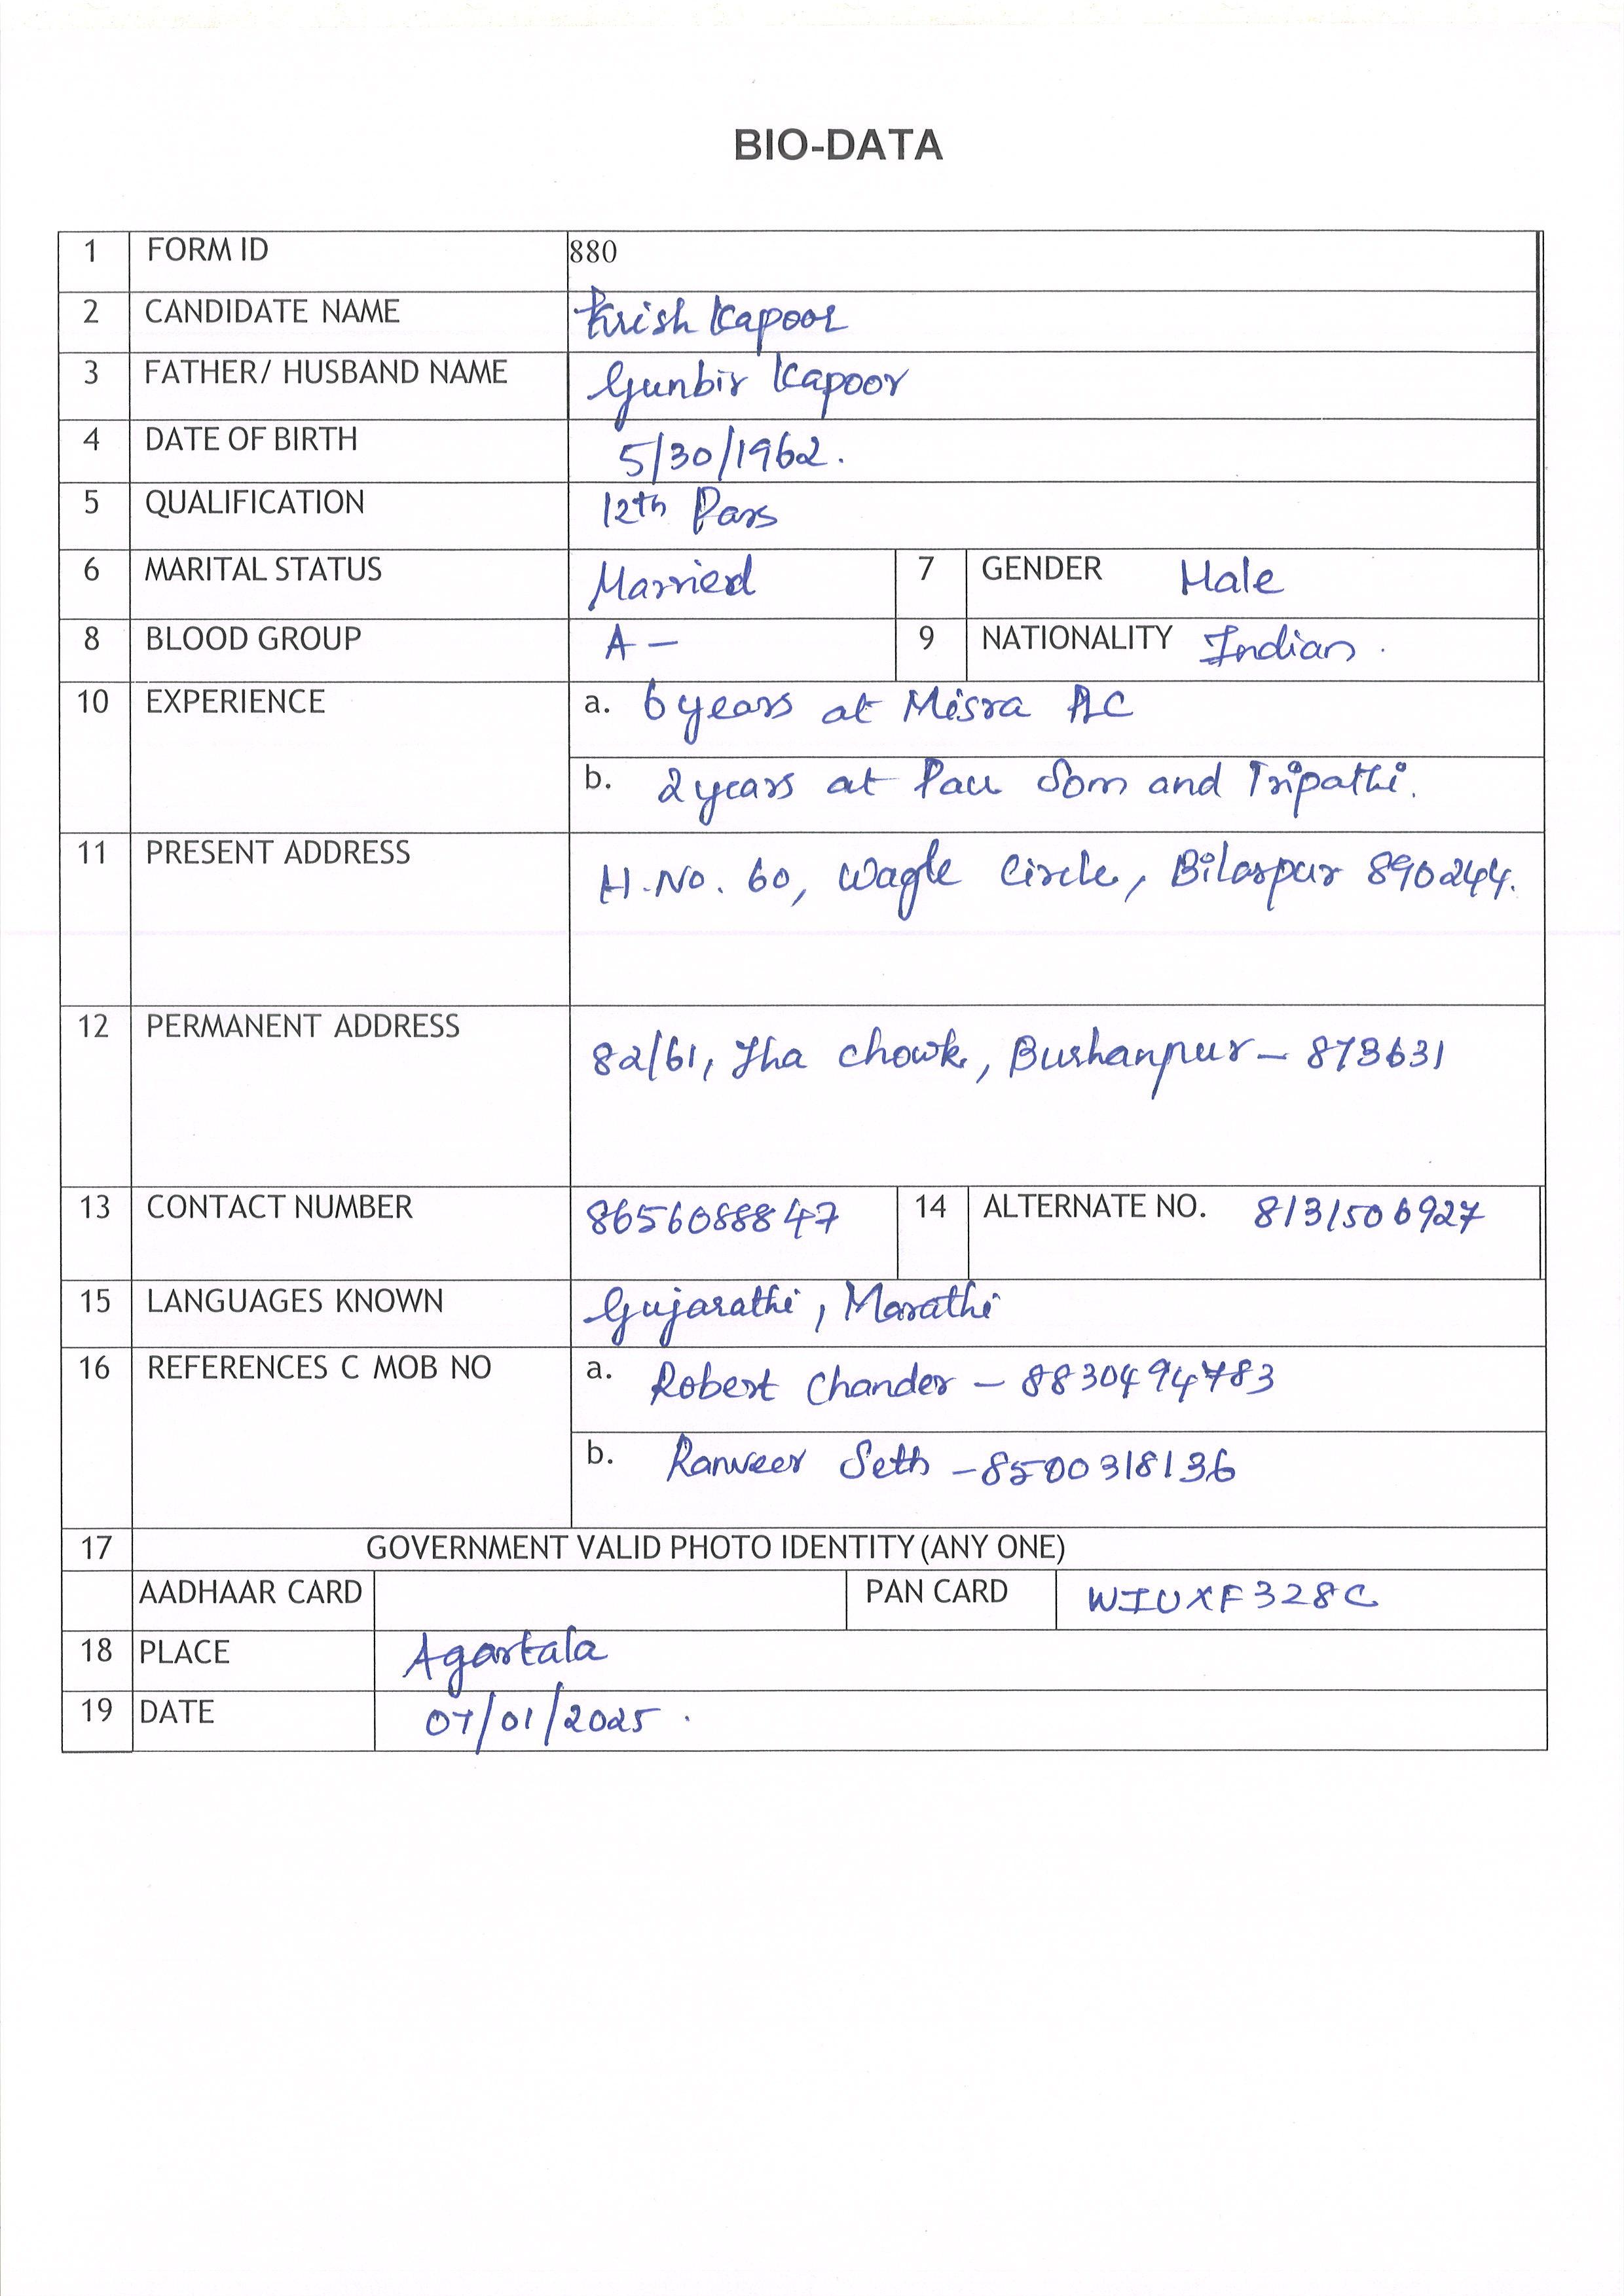 BIO-DATA
1 FORM ID 880
2 CANDIDATE NAME Krish Kapoor
3 FATHER/ HUSBAND NAME Gunbir Kapoor
4 DATE OF BIRTH 5/30/1962.
5 QUALIFICATION 12th Pass
6 MARITAL STATUS Married 7 GENDER Male
8 BLOOD GROUP A- 9 NATIONALITY Indian.
10 EXPERIENCE a. 6 years at Misra AC
b. 2 years at Pau Som and Tripathi.
11 PRESENT ADDRESS H.No. 60, Wagle Circle, Bilaspur 890244.
12 PERMANENT ADDRESS 82/61, Jha chowk, Burhanpur - 873631
13 CONTACT NUMBER 8656088847 14 ALTERNATE NO. 8131506927
15 LANGUAGES KNOWN Gujarathi, Marathi
16 REFERENCES C MOB NO a. Robert Chander - 8830494783
b. Ranveer Seth - 8500318136
17 GOVERNMENT VALID PHOTO IDENTITY (ANY ONE)
AADHAAR CARD PAN CARD WIUXF328C
18 PLACE Agartala
19 DATE 07/01/2025.